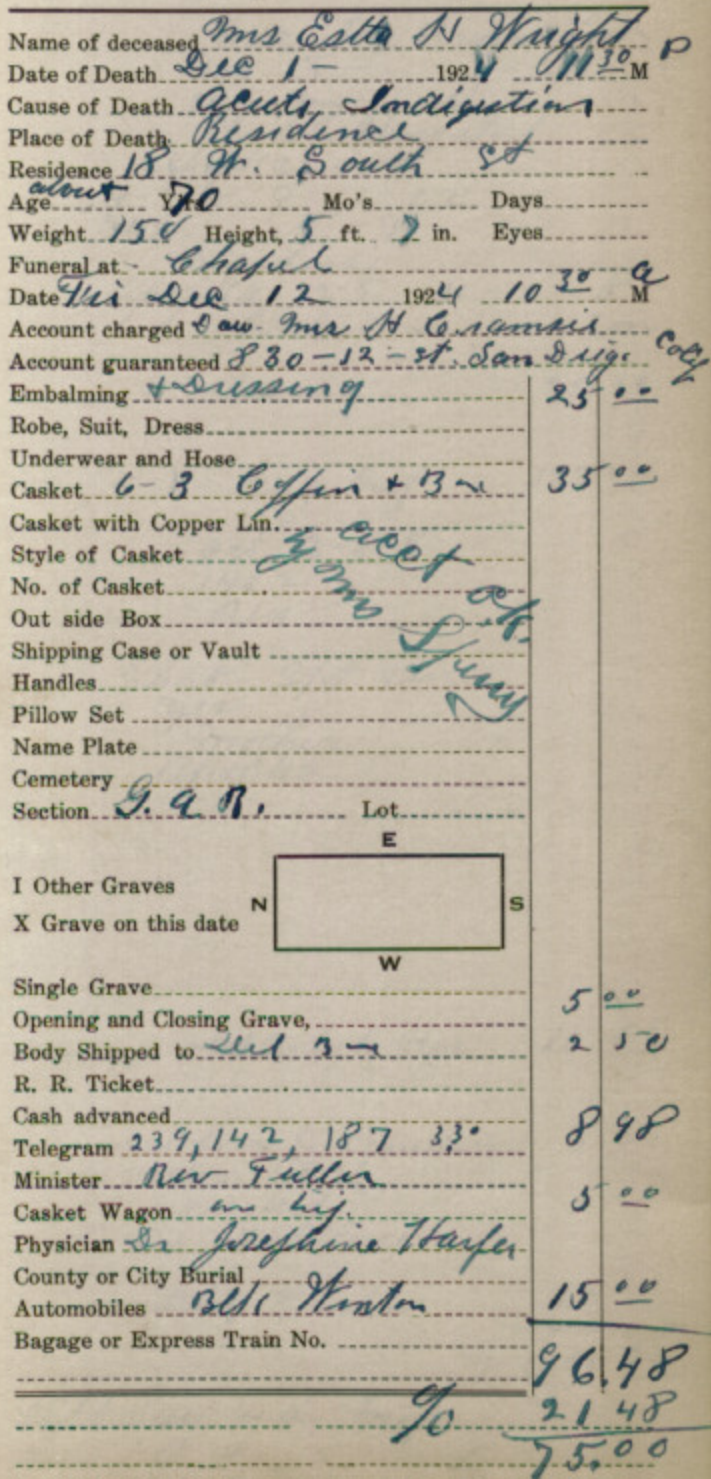 Name of deceased Mrs Estta H Wright
Date of Death Dec 1- 1924 11 30 P M
Cause of Death acute Indigestion
Place of Death Residence
Residence 18 W. South St
Age about Yrs 70 Mo's Days
Weight 150 Height, 5 ft. 2 in. Eyes
Funeral at Chapel
Date Fri Dec 12 1924 10 30 a M
Account charged Daw Mrs H
Account guaranteed 830-12-st. San Diego
Embalming + Dressing 25 00
Robe, Suit, Dress
Underwear and Hose
Casket 6-3 Coffin + Box 35 00
Casket with Copper Lin.
Style of Casket
No. of Casket
Out side Box
Shipping Case or Vault
Handles
Pillow Set
Name Plate
acct ok.
by Mrs
Cemetery
Section G. A R. Lot
E
I Other Graves
N S
X Grave on this date
W
Single Grave
Opening and Closing Grave, 5 00
Body Shipped to Del Box 2 50
R. R. Ticket
Cash advanced
Telegram 239, 142, 187 330 8 98
Minister Rev Fuller
Casket Wagon 5 00
Physician Dr Josephine Harper
County or City Burial
Automobiles Blk Winton 15 00
Bagage or Express Train No.
96.48
% 21 48
75.00